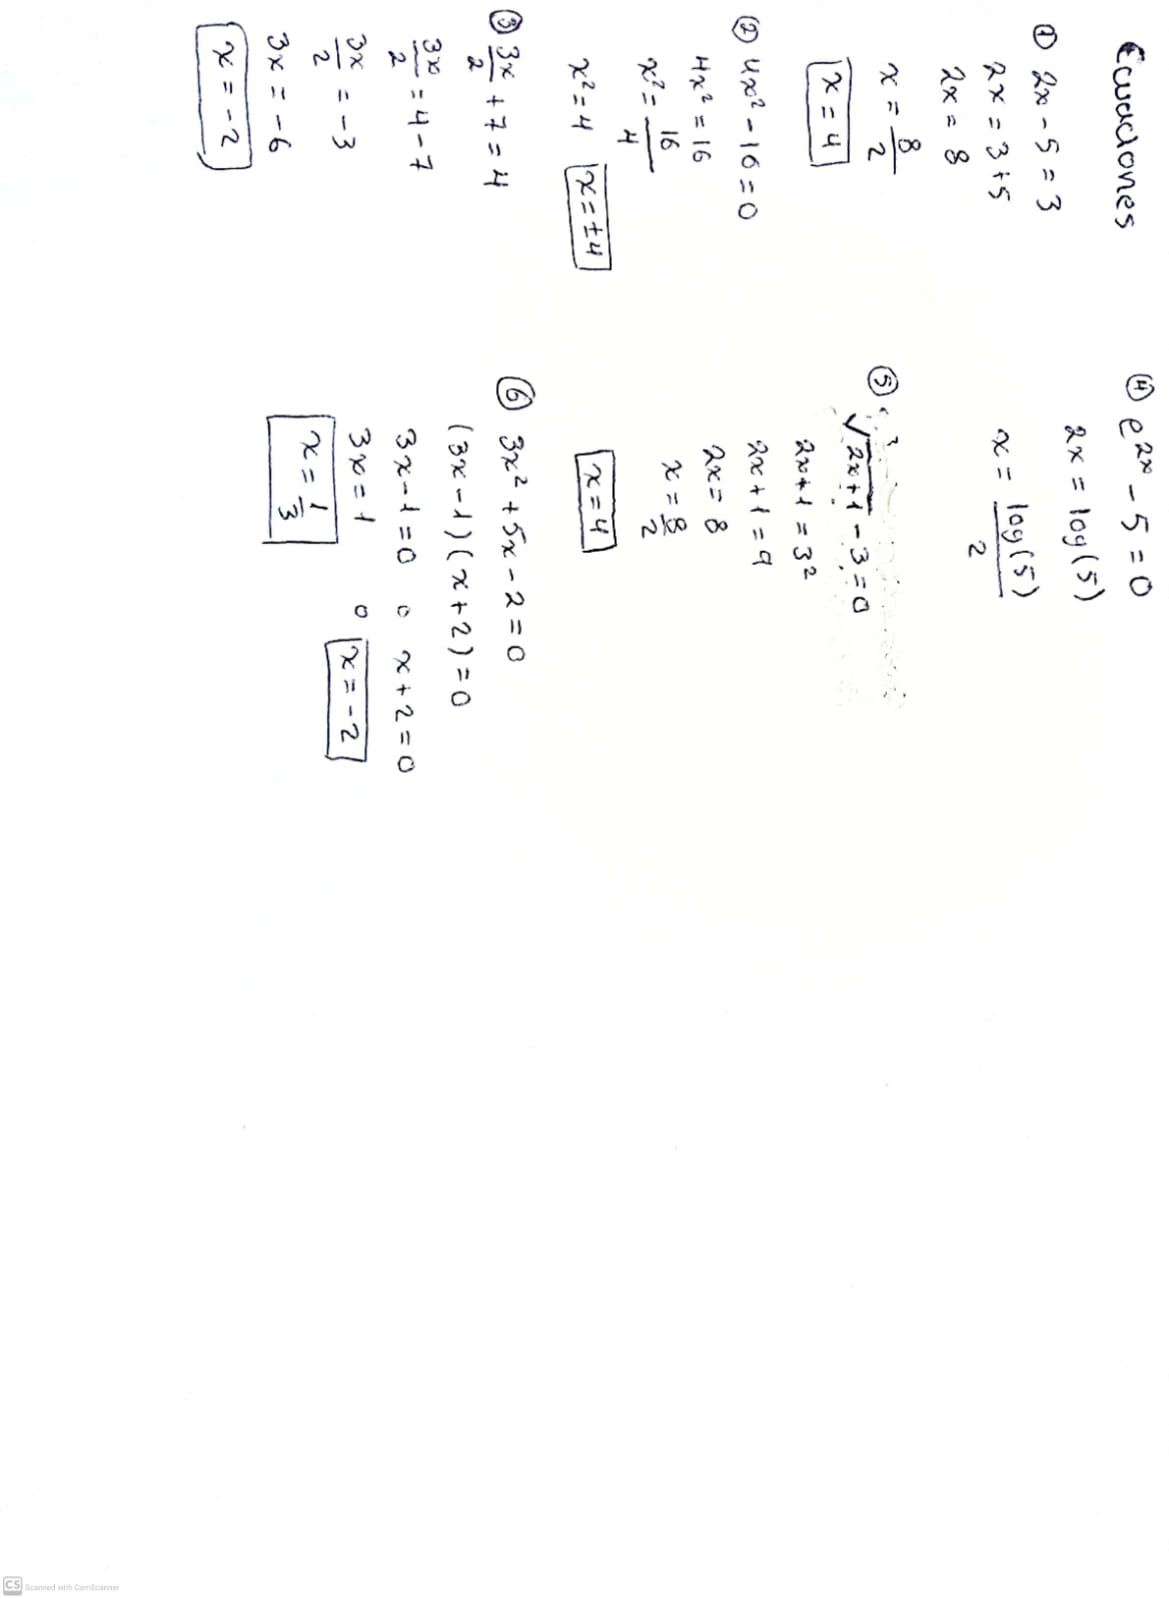 Ecuaciones
① 2x - 5 = 3
2x = 3+5
2x = 8
x = 8/2
x = 4
② 4x² - 16 = 0
4x² = 16
x² = 16/4
x² = 4 x = ±4
③ 3x/2 + 7 = 4
3x/2 = 4 - 7
3x/2 = -3
3x = -6
x = -2
④ e^2x - 5 = 0
2x = log(5)
x = log(5)/2
⑤ √2x+1 - 3 = 0
2x+1 = 3²
2x+1 = 9
2x = 8
x = 8/2
x = 4
⑥ 3x² + 5x - 2 = 0
(3x-1)(x+2) = 0
3x-1 = 0 o x+2 = 0
3x = 1 o x = -2
x = 1/3
CS Scanned with CamScanner